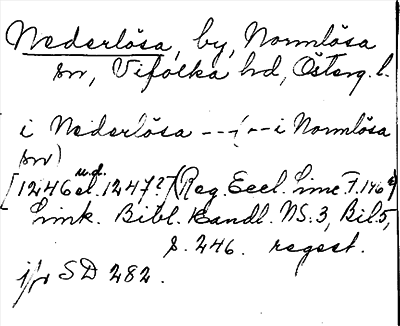 Nederlösa, by, Normlösa
sn, Vifolka hd, Österg. l.
i Nederlösa ---(--i Normlösa
sn)
u.d.
[1246 el. 1247?] (Reg. Eccl. Linc. F. 146
Link. Bibl. Handl. NS: 3, Bil. 5,
s. 246. regest.
jfr SD 282.